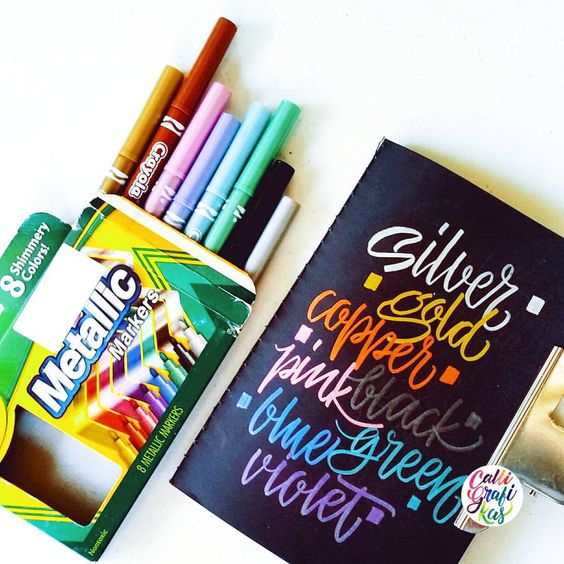 Crayola
8 Shimmery
Colors!
Metallic
Markers
8 METALLIC MARKERS
Nontoxic
silver
gold
copper
pink black
blue green
violet
Calli
Grafi
kas